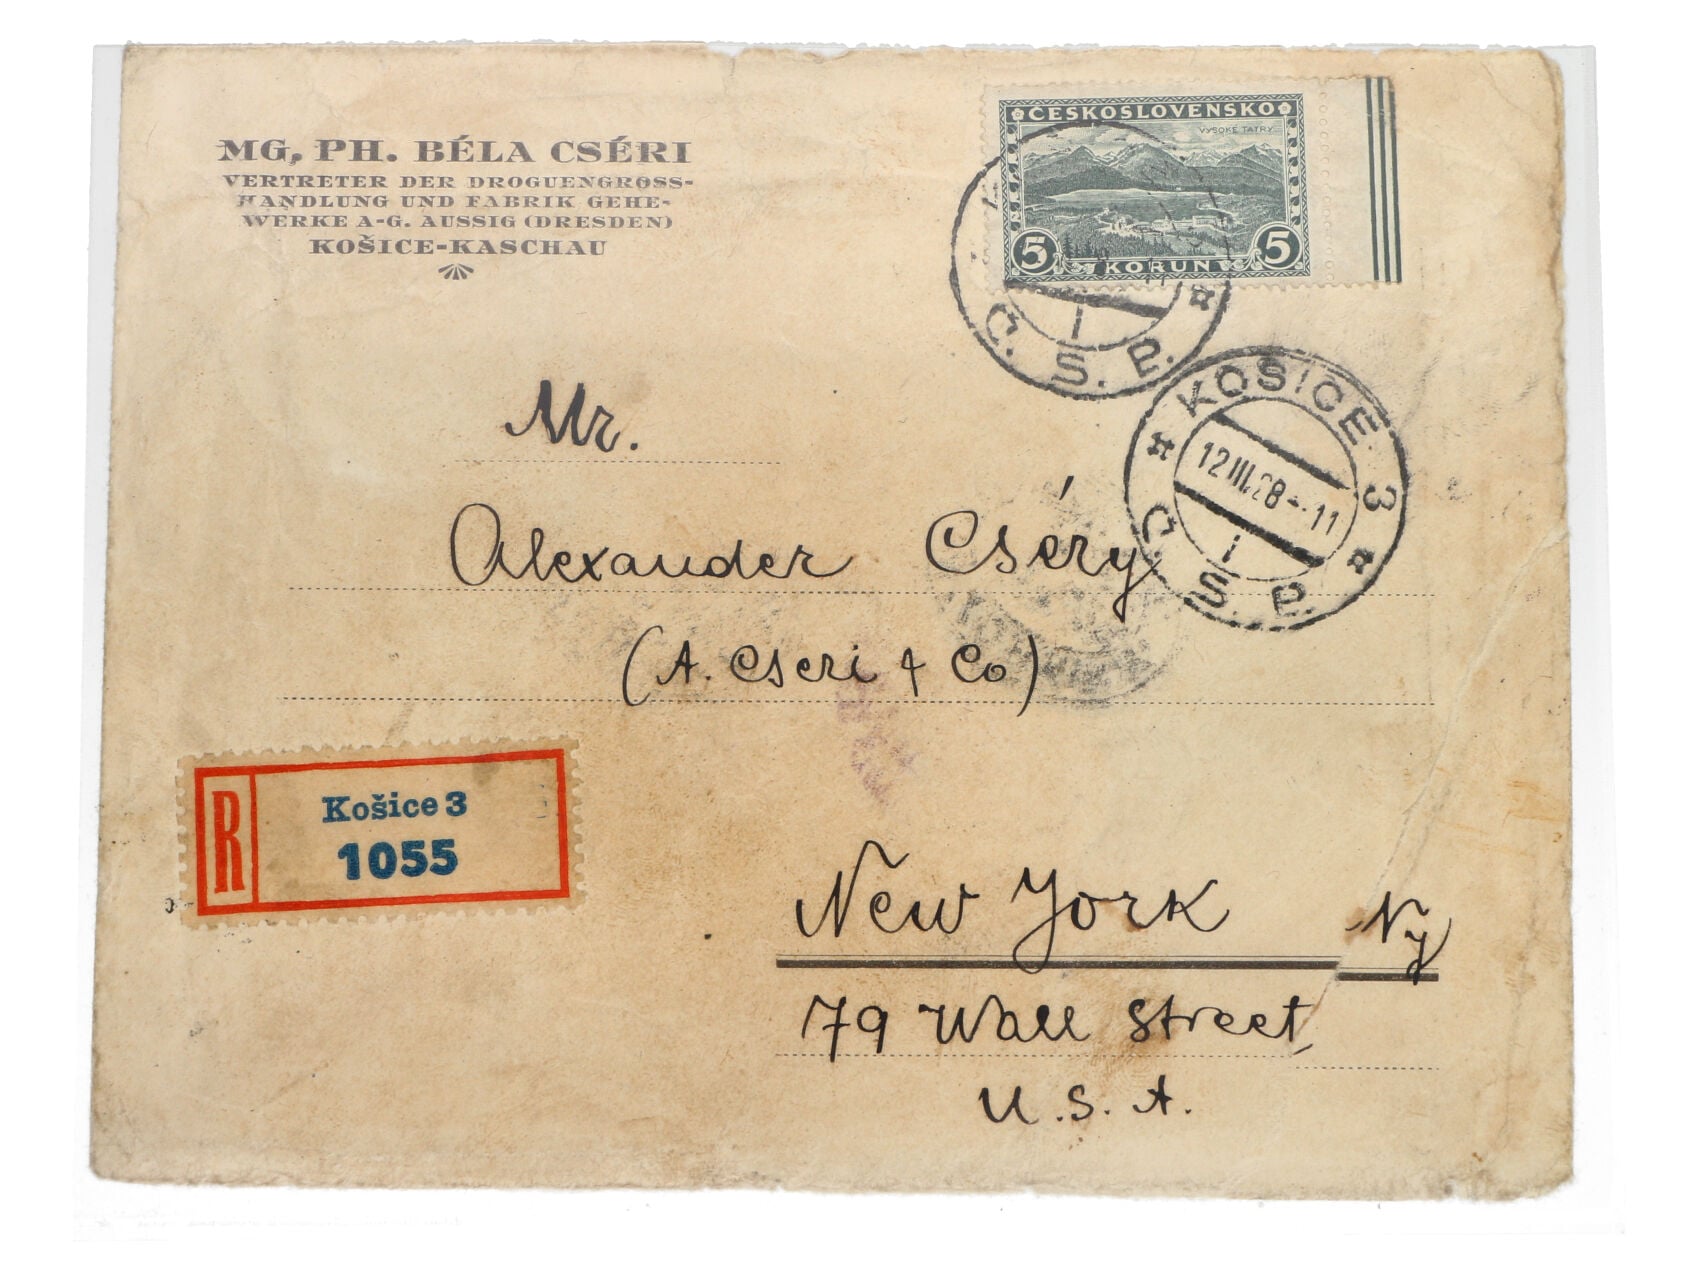 MG. PH. BÉLA CSÉRI
VERTRETER DER DROGUENGROSS-
HANDLUNG UND FABRIK GEHE-
WERKE A-G. AUSSIG (DRESDEN)
KOŠICE-KASCHAU
ČESKOSLOVENSKO
VYSOKÉ TATRY
5 KORUN 5
Č. S. P.
KOŠICE 3
12 III.28 - 11
Č. S. P.
Mr.
Alexander Cséry
(A. Cseri & Co)
R Košice 3
1055
New York Ny
79 Wall Street,
U.S.A.